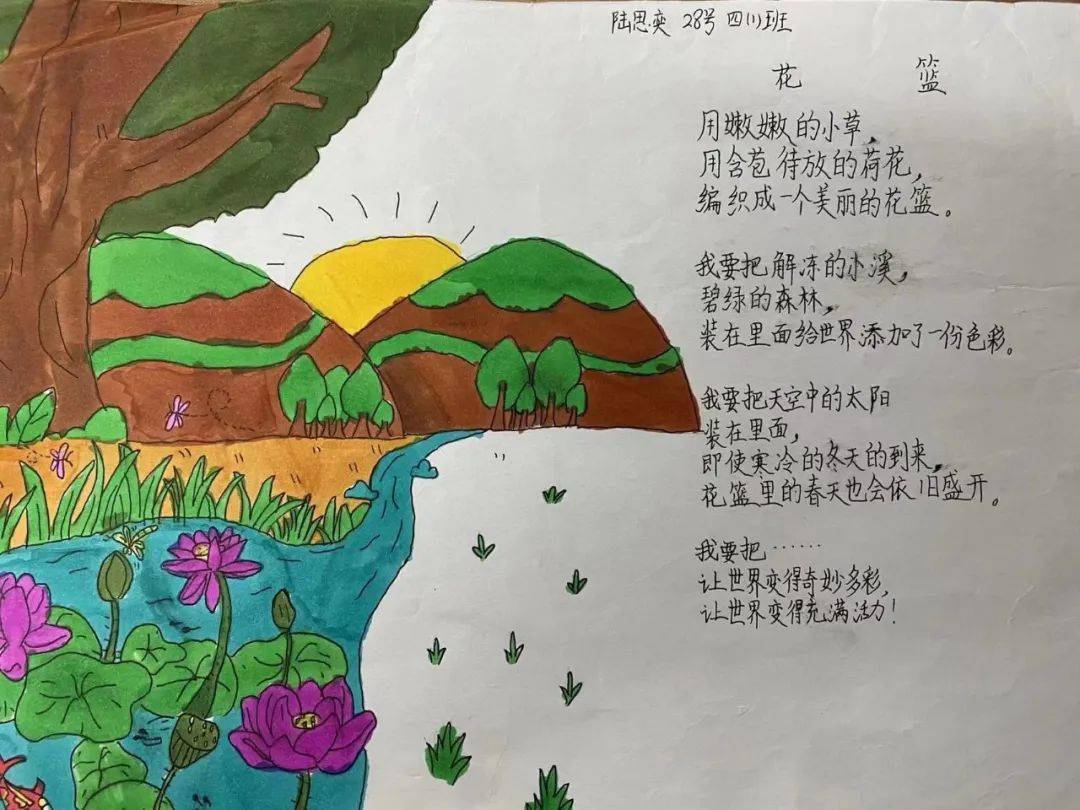 陆思奕 28号 四川班
花 篮
用嫩嫩的小草，
用含苞待放的荷花，
编织成一个美丽的花篮。
我要把解冻的小溪，
碧绿的森林，
装在里面给世界添加了一份色彩。
我要把天空中的太阳
装在里面，
即使寒冷的冬天的到来，
花篮里的春天也会依旧盛开。
我要把……
让世界变得奇妙多彩，
让世界变得充满活力！